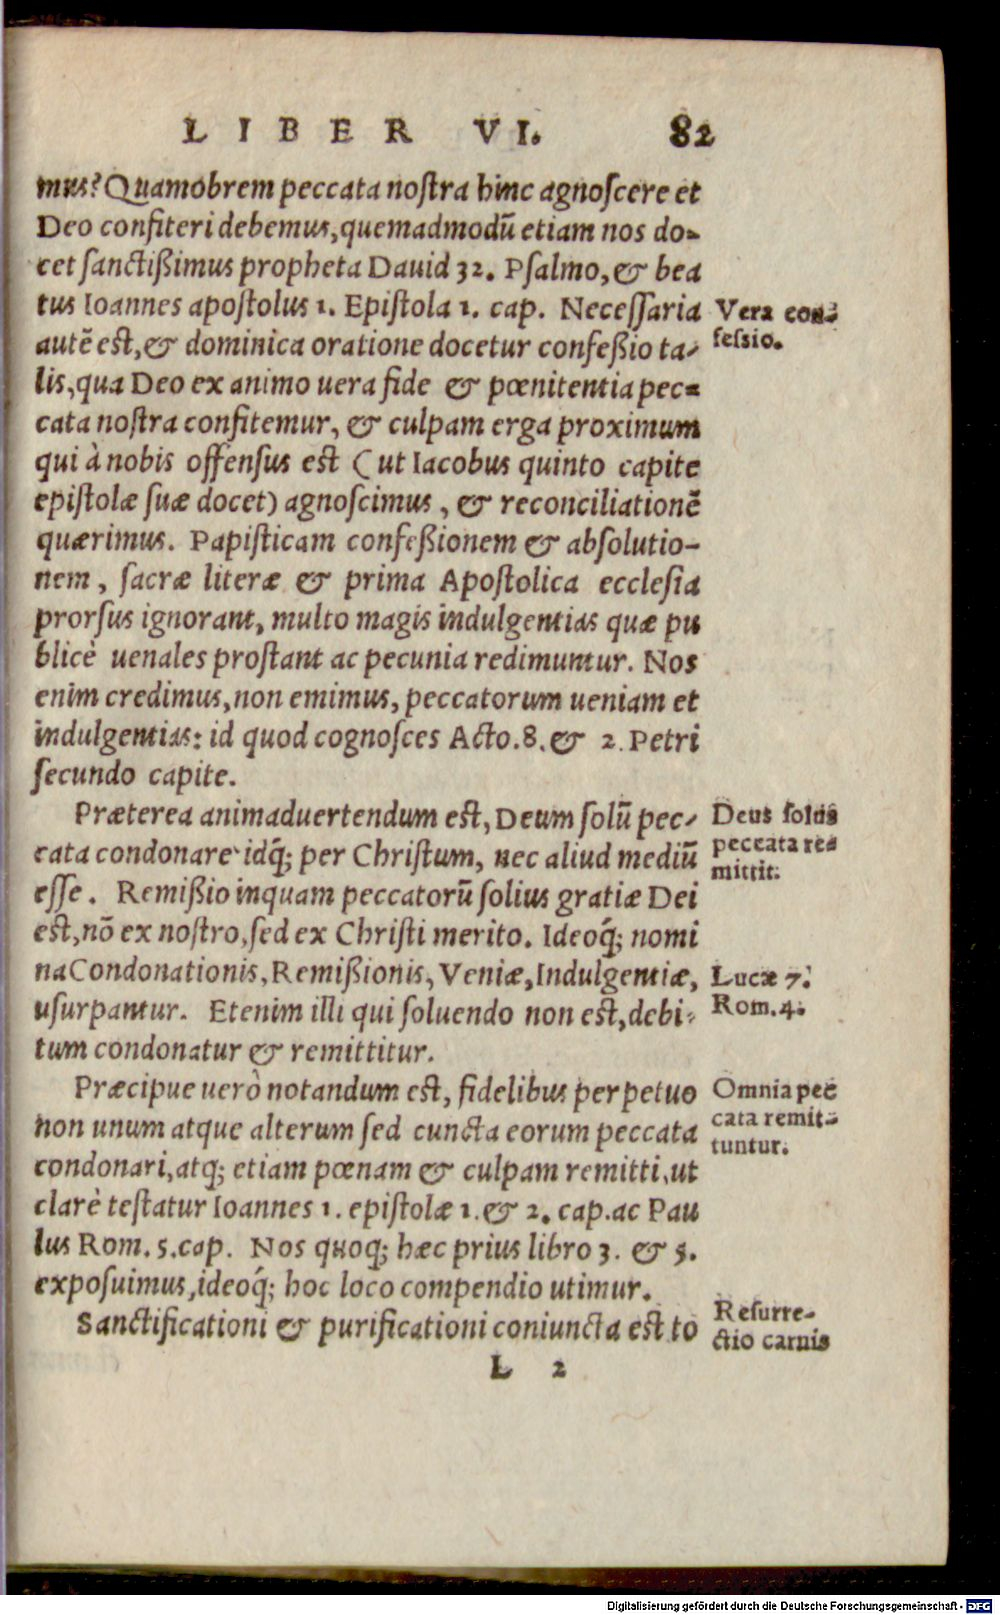 LIBER VI. 82
mus? Quamobrem peccata noſtra hinc agnoſcere et
Deo confiteri debemus, quemadmodū etiam nos do-
cet ſanctißimus propheta Dauid 32. Pſalmo, & bea
tus Ioannes apoſtolus 1. Epiſtola 1. cap. Neceſſaria
autē eſt, & dominica oratione docetur confeßio ta-
lis, qua Deo ex animo uera fide & pœnitentia pec-
cata noſtra confitemur, & culpam erga proximum
qui à nobis offenſus eſt (ut Iacobus quinto capite
epiſtolæ ſuæ docet) agnoſcimus, & reconciliationē
quærimus. Papiſticam confeßionem & abſolutio-
nem, ſacræ literæ & prima Apoſtolica eccleſia
prorſus ignorant, multo magis indulgentias quæ pu
blicè uenales proſtant ac pecunia redimuntur. Nos
enim credimus, non emimus, peccatorum ueniam et
indulgentias: id quod cognoſces Acto. 8. & 2. Petri
ſecundo capite.
Vera con-
feſsio.
Præterea animaduertendum eſt, Deum ſolū pec-
cata condonare idq́; per Chriſtum, nec aliud mediū
eſſe. Remißio inquam peccatorū ſolius gratiæ Dei
eſt, nō ex noſtro, ſed ex Chriſti merito. Ideoq́; nomi
na Condonationis, Remißionis, Veniæ, Indulgentiæ,
uſurpantur. Etenim illi qui ſoluendo non eſt, debi-
tum condonatur & remittitur.
Deus ſolus
peccata re-
mittit.
Lucæ 7.
Rom. 4.
Præcipue uerò notandum eſt, fidelibus perpetuo
non unum atque alterum ſed cuncta eorum peccata
condonari, atq; etiam pœnam & culpam remitti, ut
clarè teſtatur Ioannes 1. epiſtolæ 1. & 2. cap. ac Pau
lus Rom. 5. cap. Nos quoq; hæc prius libro 3. & 5.
expoſuimus, ideoq́; hoc loco compendio utimur.
Omnia pec
cata remit-
tuntur.
Sanctificationi & purificationi coniuncta eſt to
Reſurre-
ctio carnis
L 2
Digitalisierung gefördert durch die Deutsche Forschungsgemeinschaft - DFG